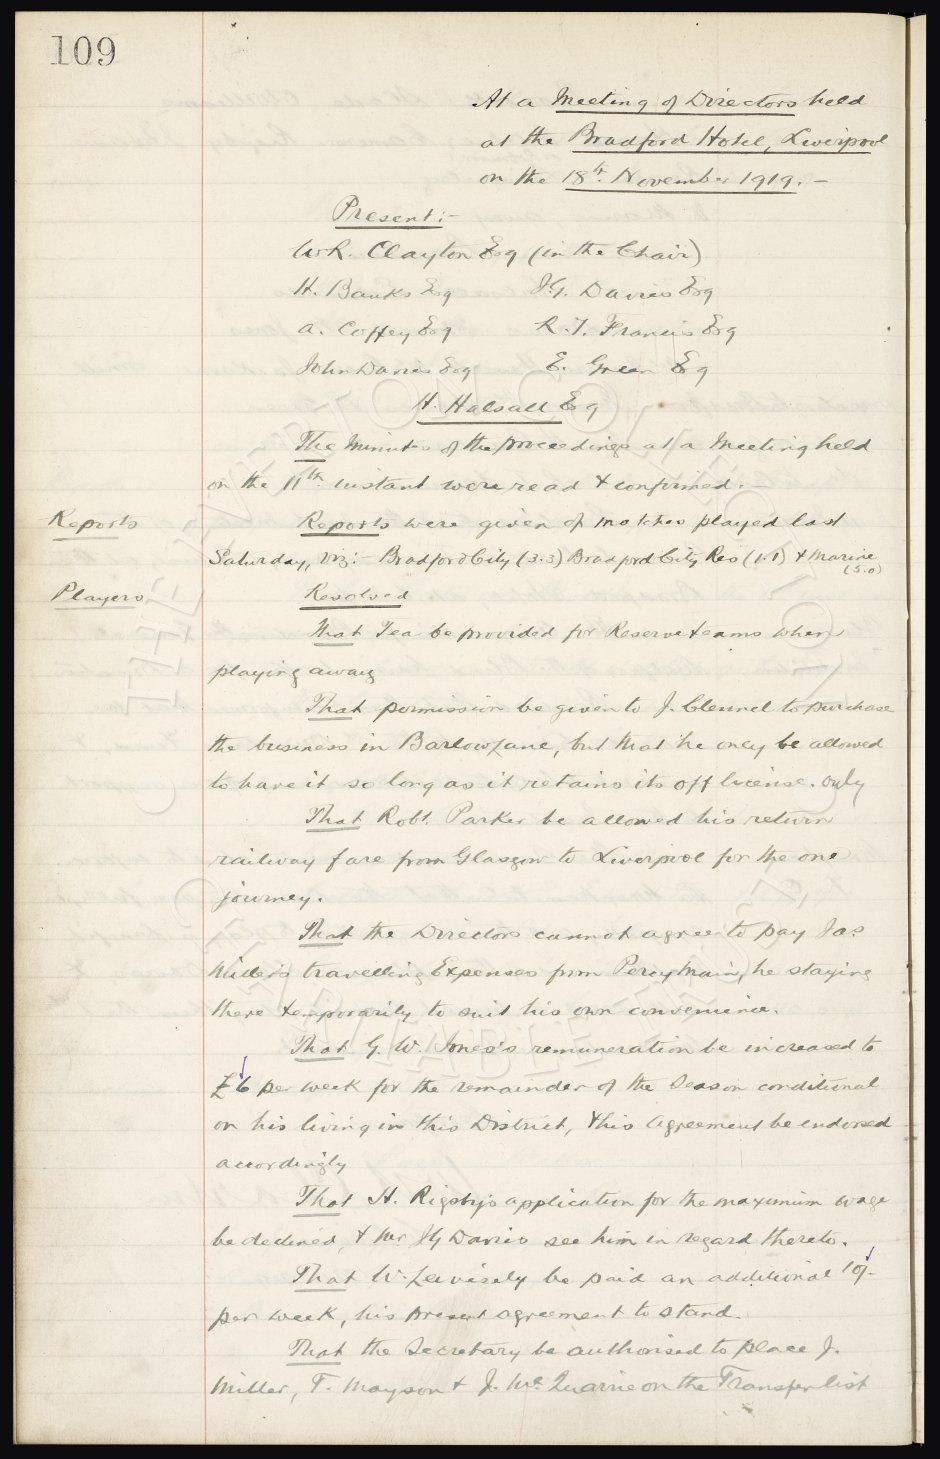 109
At a Meeting of Directors held
at the Bradford Hotel, Liverpool
on the 18th November 1919. –
Present:–
W.R. Clayton Esq (in the Chair)
H. Banks Esq J.G. Davies Esq
A. Coffey Esq R.T. Francis Esq
John Davies Esq E. Green Esq
H. Halsall Esq
The Minutes of the proceedings at a Meeting held
on the 11th instant were read & confirmed. –
Reports Reports were given of matches played last
Saturday, viz:– Bradford City (3.3) Bradford City Res (1.1) & Marine
(5.0)
Players Resolved
That Tea be provided for Reserve teams when
playing away
That permission be given to J. Clennel to purchase
the business in Barlow Lane, but that he only be allowed
to have it so long as it retains its off license. only
That Robt. Parker be allowed his return
railway fare from Glasgow to Liverpool for the one
journey.
That the Directors cannot agree to pay Jas
Miller's travelling Expenses from Percy Main, he staying
there temporarily to suit his own convenience.
That G. W. Jones's remuneration be increased to
£6 per week for the remainder of the Season conditional
on his living in this District, & his Agreement be endorsed
accordingly
That H. Rigsby's application for the maximum wage
be declined, & Mr JG Davies see him in regard thereto.
That W. Leivesely be paid an additional 10/-
per week, his present agreement to stand.
That the Secretary be authorised to place J.
Miller, T. Mayson & J. McQuarrie on the Transfer list